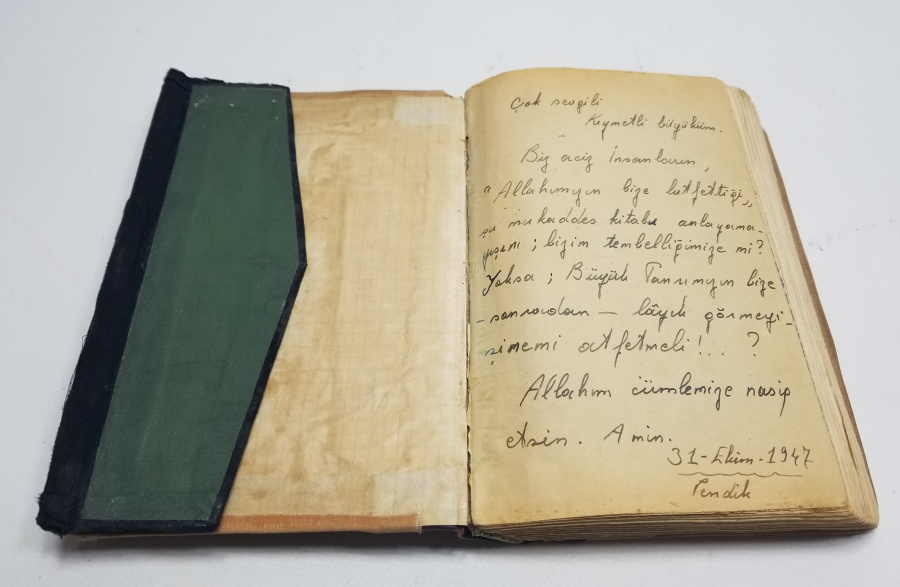 Çok sevgili
Kıymetli büyüküm.
Biz aciz İnsanların,
"Allahımızın bize lutfettiği,,
şu mukaddes kitabı anlayama-
yışını ; bizim tembelliğimize mi?
Yoksa ; Büyük Tanrımızın bize
- sonradan - lâyık görmeyi-
şinemi atfetmeli!.. ?
Allahım cümlemize nasip
etsin. Amin.
31-Ekim-1947
Pendik